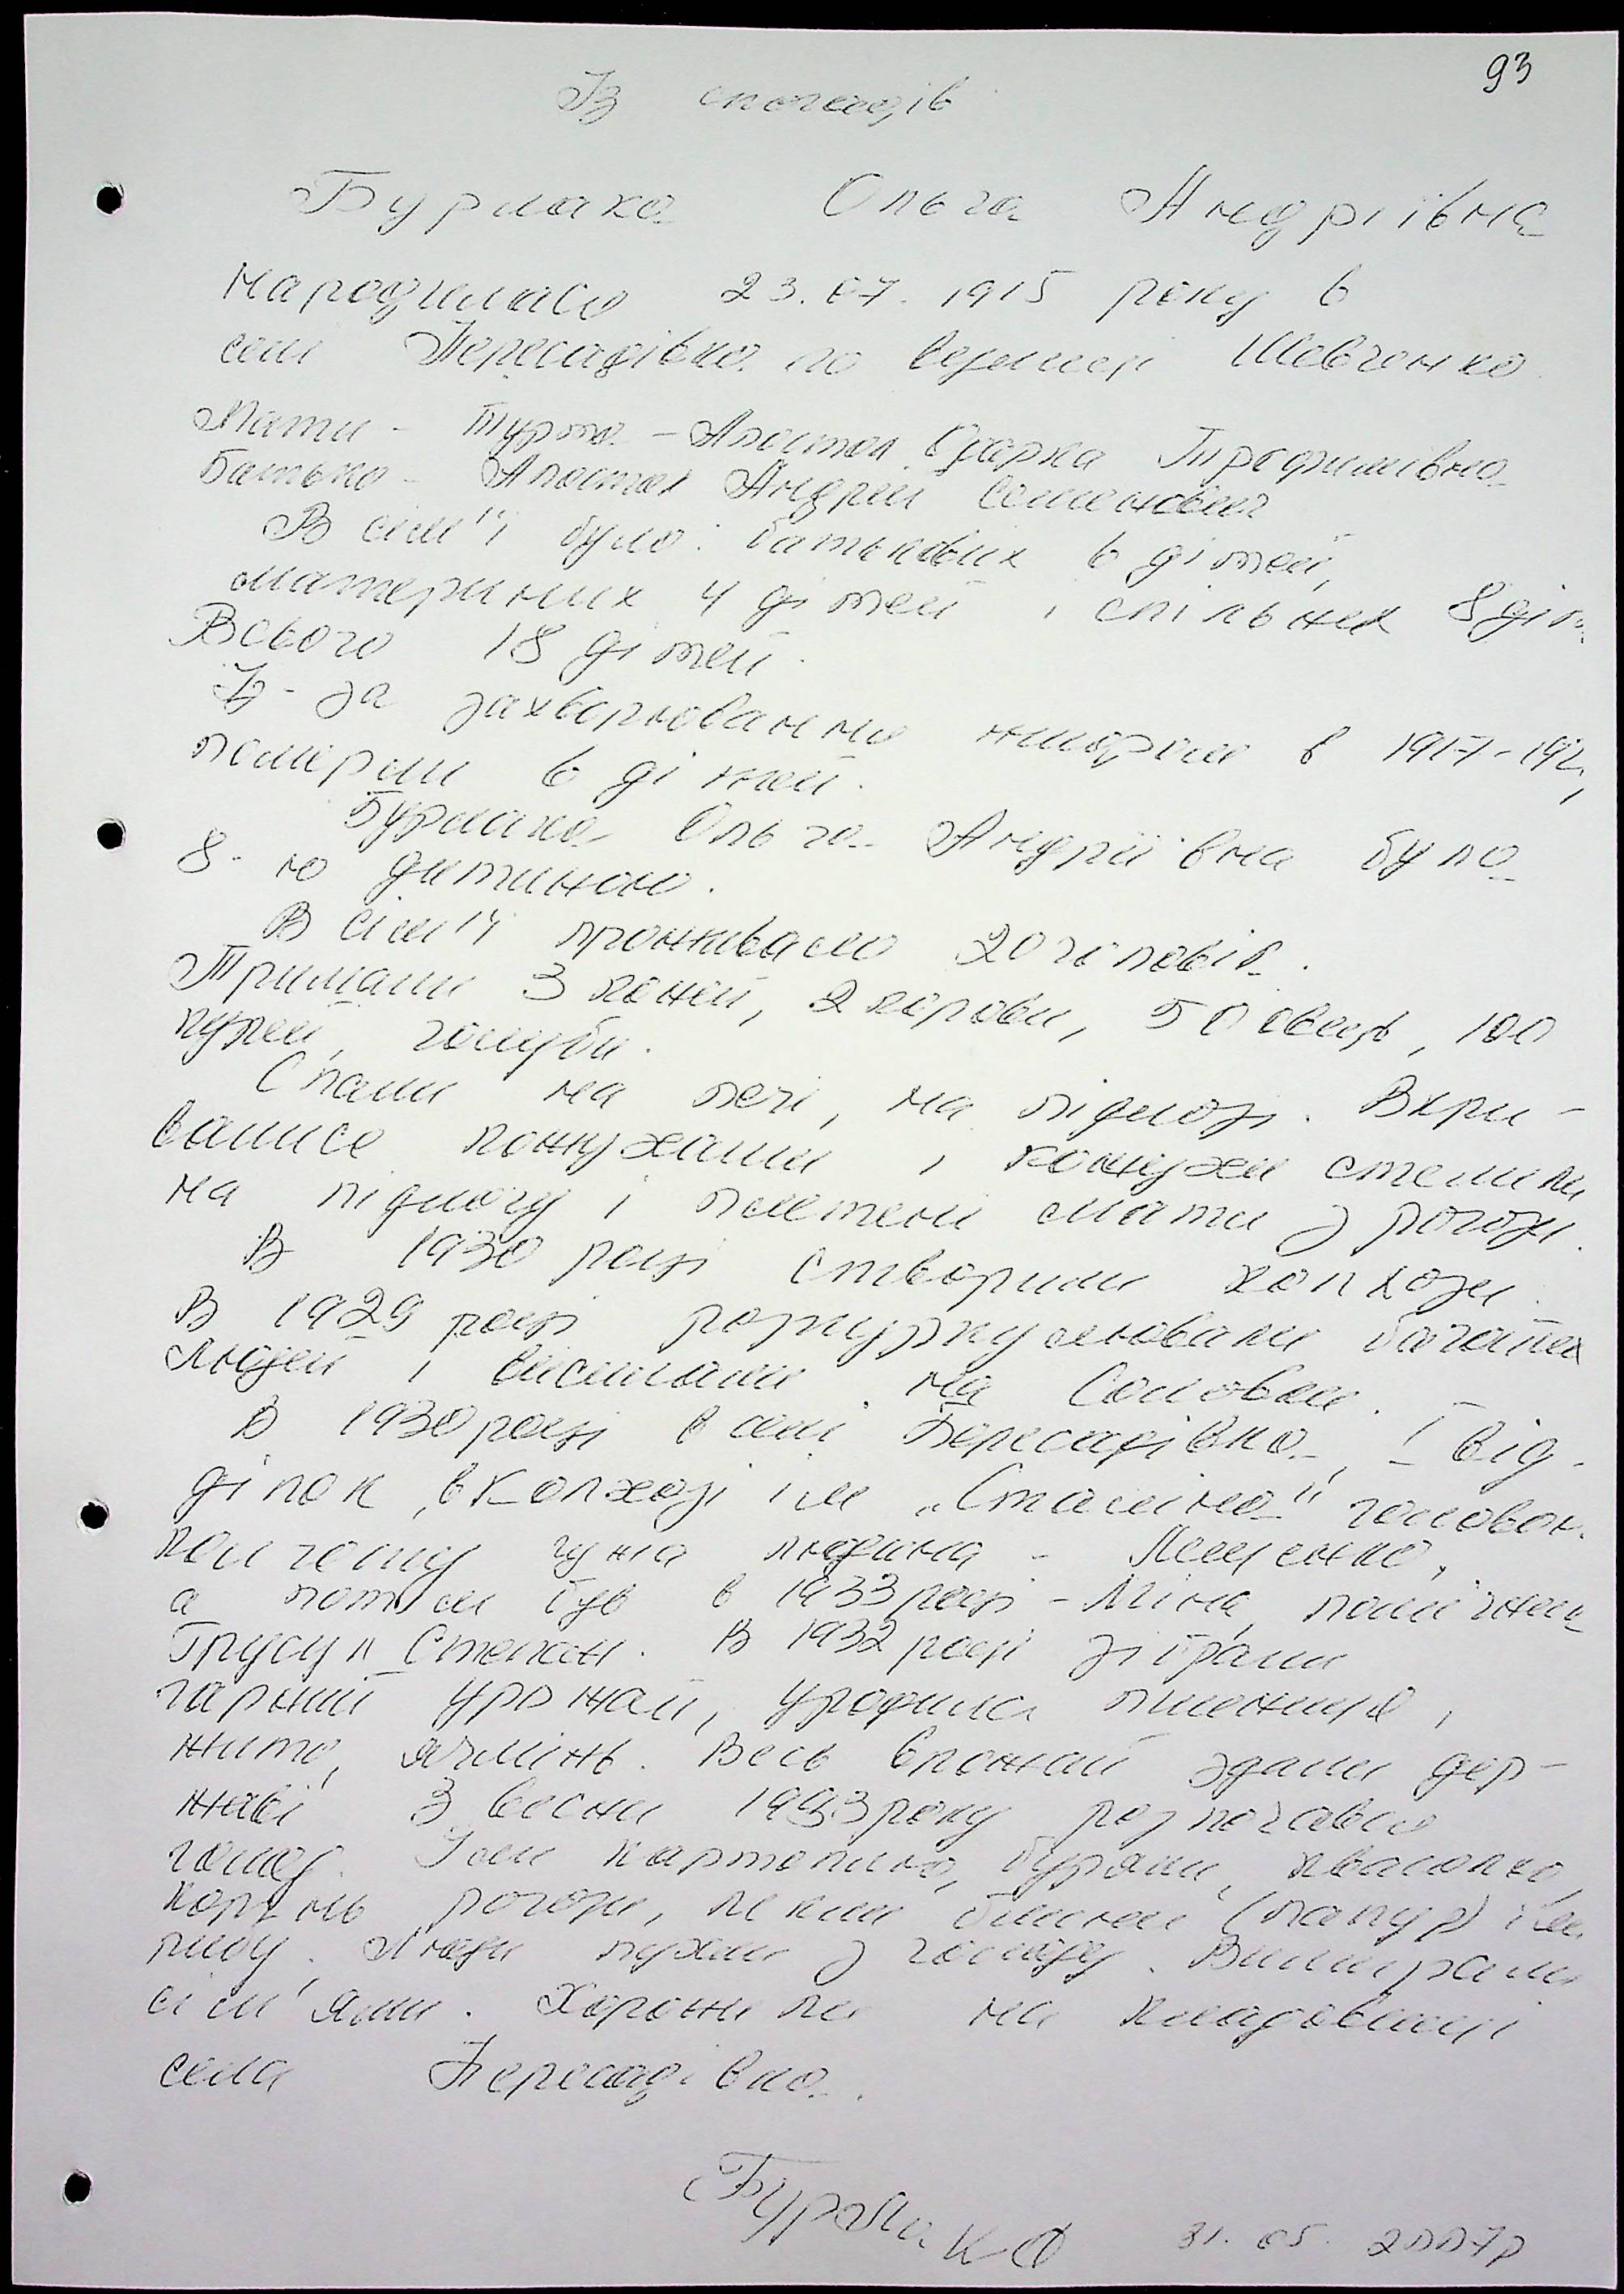 93
Із спогадів
Бурмака Ольга Андріївна
народилась 23.07.1915 року в
селі Пересадівка по вулиці Шевченко
Мати - Турта - Апостол Одарка Трофимівна
Батько - Апостол Андрій Семенович
В сім'ї було: батькових 6 дітей,
материних 4 дітей і спільних 8 діт.
Всього 18 дітей.
Із-за захворювання в 1917-192
померли 6 дітей.
Бурмака Ольга Андріївна була
8-ю дитиною.
В сім'ї проживало 20 чоловік.
Тримали 3 коней, 2 корови, 50 овець, 100
курей, голуби.
Спали на печі, на підлозі. Вкри-
вались кожухами, і кожухи стелили
на підлогу і плетені мати з рогози.
В 1930 році створили колхози.
В 1929 році розкуркулювали багатих
людей і висилали на Соловки.
В 1930 році в селі Пересадівка, I від-
ділок, в колхозі ім „Сталіна" головою
чужа людина - Лещенко,
а потім був в 1933 році - Міна,
Трусул Степан. В 1932 році зібрали
гарний урожай, уродила пшениця,
жито, ячмінь. Весь врожай здали дер-
жаві З весни 1933 року розпочався
голод. Їли картоплино, буряки, квасолю,
корінь рогози, (папур)
рибу. Люди пухли з голоду. Вимирали
сім'ями. Хоронили на кладовищі
села Пересадівка.
Бурмака 31.05.2007р